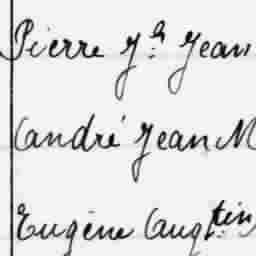 Pierre Jh Jean
André Jean M
Eugène Augtin